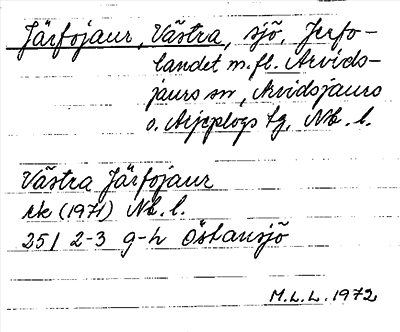 Järfojaur, Västra, sjö, Jerfo-
landet m.fl. Arvids-
jaurs sn, Arvidsjaurs
o. Arjeplogs tg, Nb. l.
Västra Järfojaur
rk (1971) Nb. l.
25I 2-3 g-h Östansjö
M.L.L. 1972